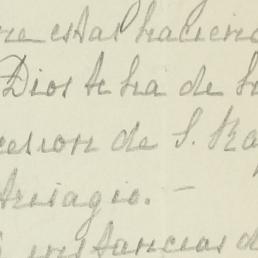 re estas haciend
Dios te ha de
cesion de S. Ra
Arriagio. —
instancias d